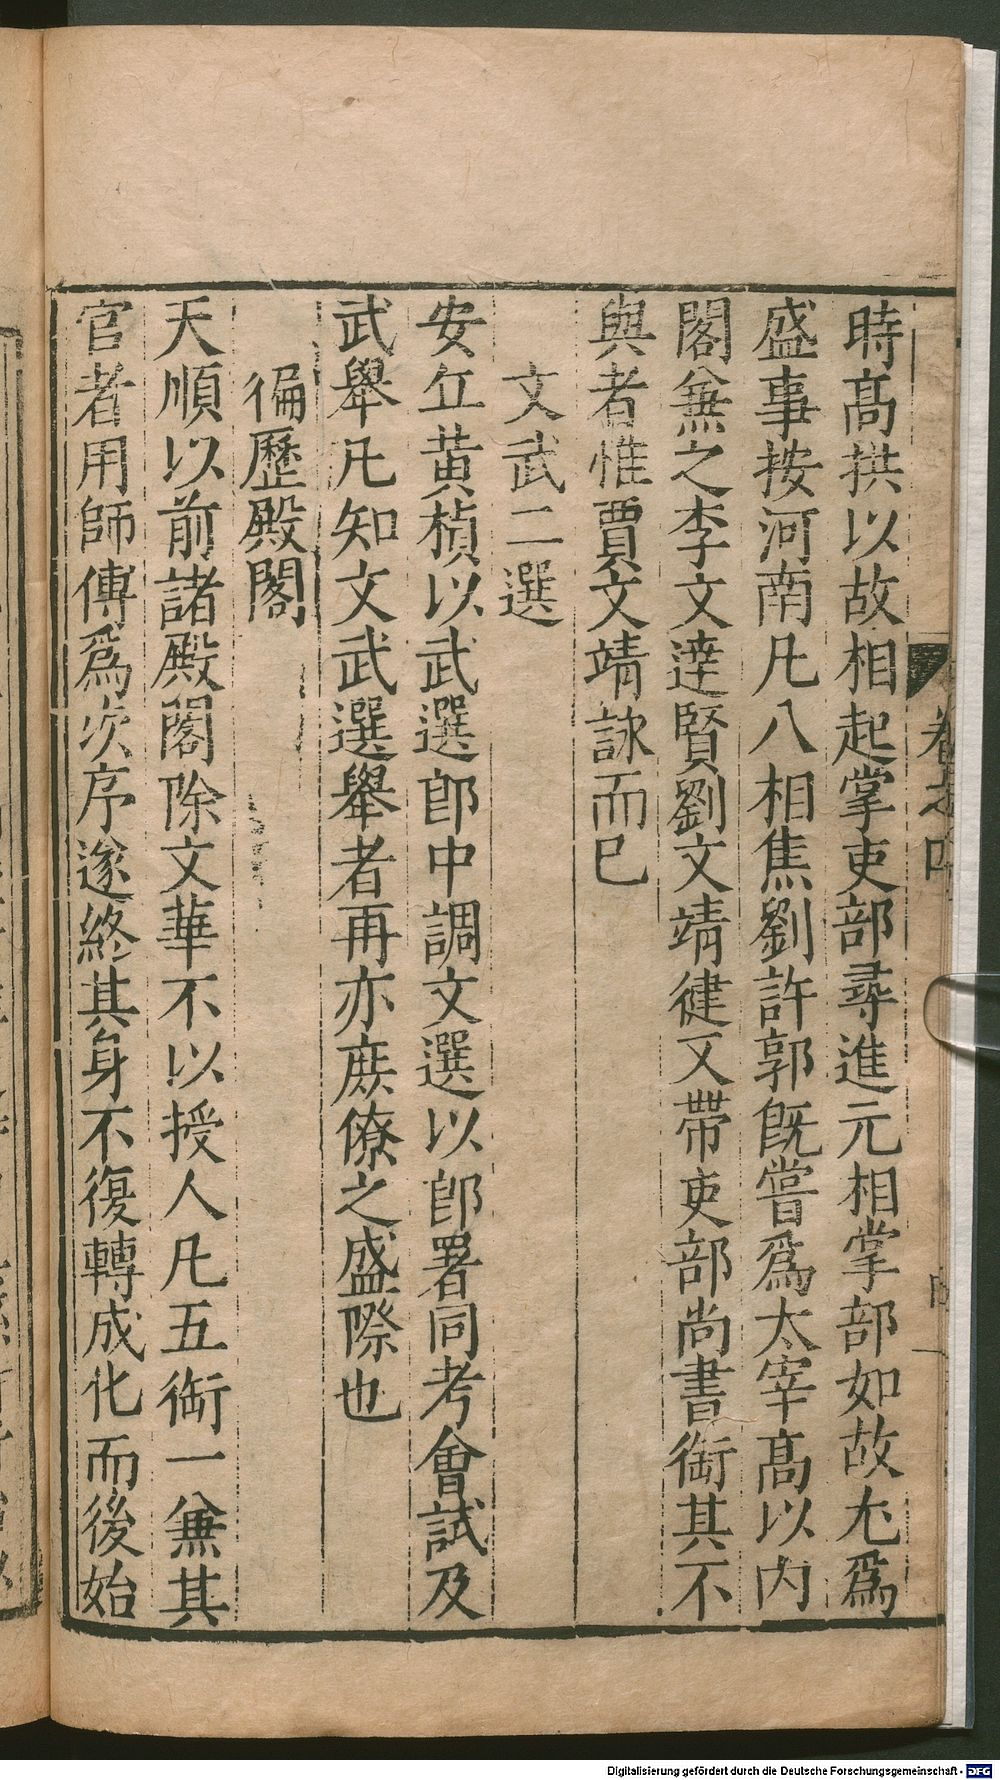 時髙拱以故相起掌吏部尋進元相掌部如故尤爲
盛事按河南凡八相焦劉許郭旣嘗爲太宰髙以内
閣兼之李文達賢劉文靖健又帶吏部尚書銜其不
與者惟賈文靖詠而已
文武二選
安丘黄楨以武選郎中調文選以郎署同考會試及
武舉凡知文武選舉者再亦庶僚之盛際也
徧歷殿閣
天順以前諸殿閣除文華不以授人凡五銜一兼其
官者用師傅爲次序遂終其身不復轉成化而後始
卷之四
Digitalisierung gefördert durch die Deutsche Forschungsgemeinschaft - DFG